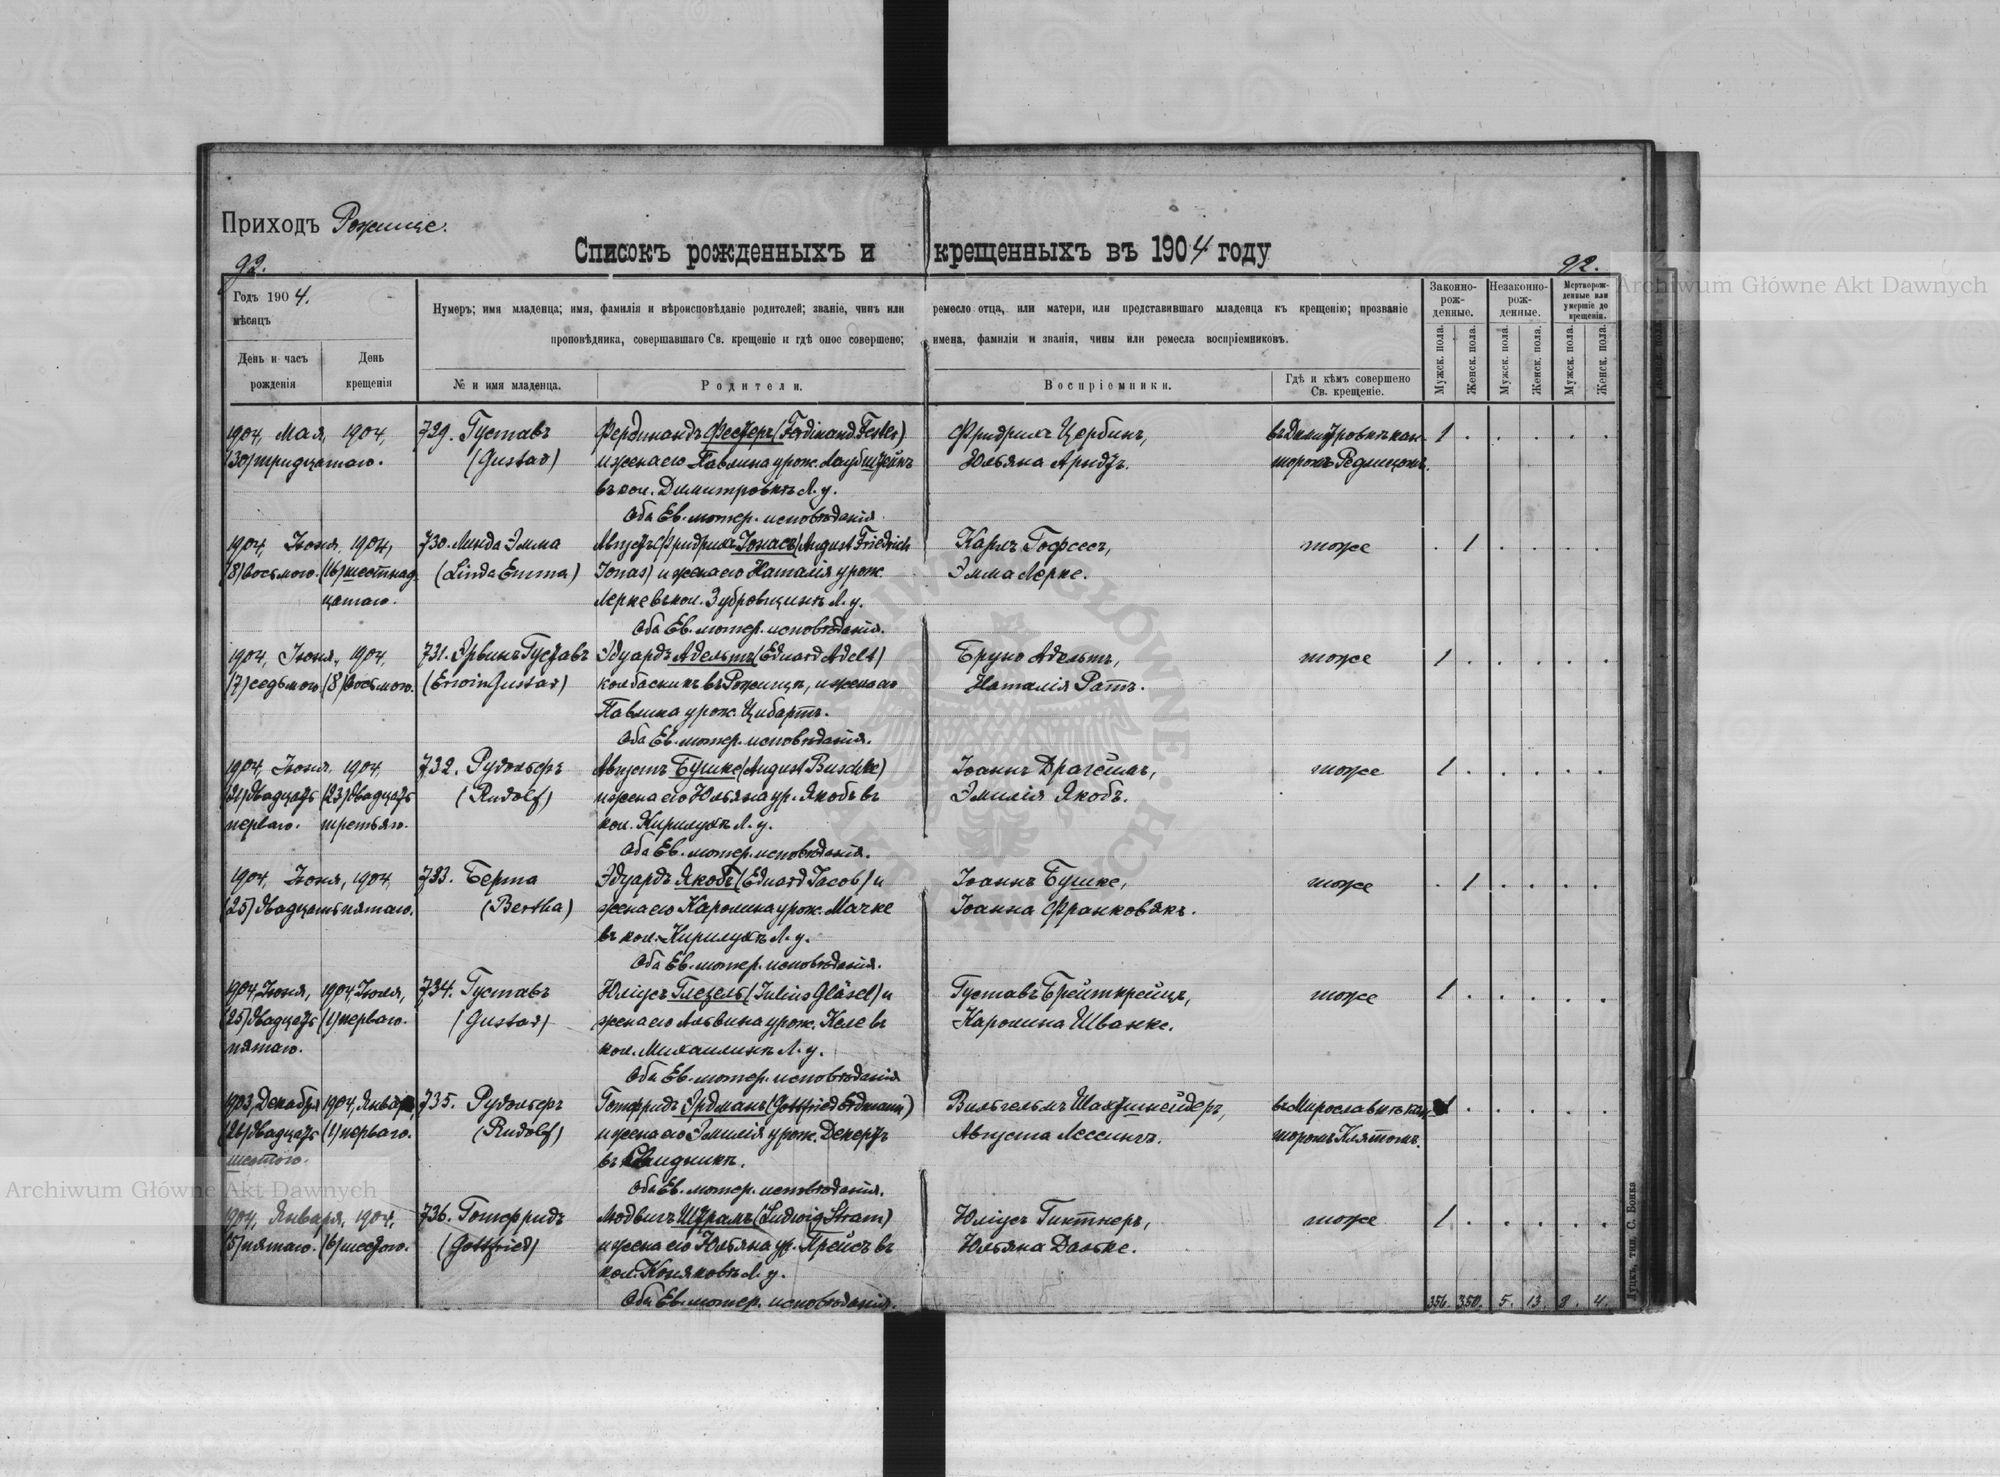 Приходъ Рожище.
Списокъ рожденныхъ и крещенныхъ въ 1904 году
92.
92.
Годъ 1904.
мѣсяцъ
День и часъ
рожденія
День
крещенія
Нумеръ; имя младенца; имя, фамилія и вѣроисповѣданіе родителей; званіе, чинъ или ремесло отца, или матери, или представившаго младенца къ крещенію; прозваніе
проповѣдника, совершавшаго Св. крещеніе и гдѣ оное совершено; имена, фамиліи и званія, чины или ремесла воспріемниковъ.
№ и имя младенца.
Родители.
Воспріемники.
Гдѣ и кѣмъ совершено
Св. крещеніе.
Законно-
рож-
денные.
Незаконно-
рож-
денные.
Мертворож-
денные или
умершіе до
крещенія.
Мужск. пола.
Женск. пола.
Мужск. пола.
Женск. пола.
Мужск. пола.
Женск. пола.
1904, Мая, 1904, 729. Густавъ Фердинандъ Фестеръ (Ferdinand Fester) Фридрихъ Цербинъ, въ Димитровкѣ кан- 1
(30) тридцатаго. (Gustav) и жена его Павлина урож. Лаубштейнъ Юльяна Арндтъ. торомъ Редлицомъ.
въ кол. Димитровкѣ Л. у.
Оба Ев. лютер. исповѣданія
1904, Іюня, 1904, 730. Линда Эмма Августъ Фридрихъ Іонасъ (August Friedrich Карлъ Гофсесъ, тоже 1
(8) восьмого. (16) шестнад- (Linda Emma) Jonas) и жена его Наталія урож. Эмма Лерке.
цатаго. Лерке въ кол. Зубровщинѣ Л. у.
Оба Ев. лютер. исповѣданія.
1904, Іюня, 1904, 731. Эрвинъ Густавъ Эдуардъ Адельтъ (Eduard Adelt) Бруно Адельтъ, тоже 1
(7) седьмого (8) восьмого. (Erwin Gustav) колбасникъ въ Рожищѣ, и жена его Наталія Ратъ.
Павлина урож. Цибартъ.
Оба Ев. лютер. исповѣданія.
1904, Іюня, 1904, 732. Рудольфъ Августъ Бушке (August Buschke) Іоаннъ Драгеймъ, тоже 1
(21) двадцать (23) двадцать (Rudolf) и жена его Юльяна ур. Якобъ въ Эмилія Якобъ.
перваго. третьяго. кол. Кирилукѣ Л. у.
Оба Ев. лютер. исповѣданія.
1904, Іюня, 1904, 733. Берта Эдуардъ Якобъ (Eduard Jacob) и Іоаннъ Бушке, тоже 1
(25) двадцать пятаго. (Bertha) жена его Каролина урож. Мачке Іоанна Франковякъ.
въ кол. Кирилукѣ Л. у.
Оба Ев. лютер. исповѣданія.
1904, Іюня, 1904, Іюля, 734. Густавъ Юліусъ Глезель (Julius Gläsel) и Густавъ Брейткрейцъ, тоже 1
(25) двадцать (1) перваго. (Gustav) жена его Альвина урож. Келе въ Каролина Шванке.
пятаго. кол. Михаилинѣ Л. у.
Оба Ев. лютер. исповѣданія
1903, Декабря 1904, Января 735. Рудольфъ Готфридъ Эрдманъ (Gottfried Erdmann) Вильгельмъ Шахтшнейдеръ, въ Мирославкѣ кан- 1
(26) двадцать (1) перваго. (Rudolf) и жена его Эмилія урож. Декертъ Августа Лессингъ. торомъ Клятомъ.
шестого. въ Свидникѣ.
Оба Ев. лютер. исповѣданія.
1904, Января, 1904, 736. Готфридъ Людвигъ Штрамъ (Ludwig Stram) Юліусъ Гиктнеръ, тоже 1
(5) пятаго. (6) шестого. (Gottfried) и жена его Юльяна ур. Прейсъ въ Юльяна Дальке.
кол. Коняковѣ Л. у.
Оба Ев. лютер. исповѣданія.
356. 350. 5. 13. 8. 4.
Луцкъ, тип. С. Бонка
Archiwum Główne Akt Dawnych
Archiwum Główne Akt Dawnych